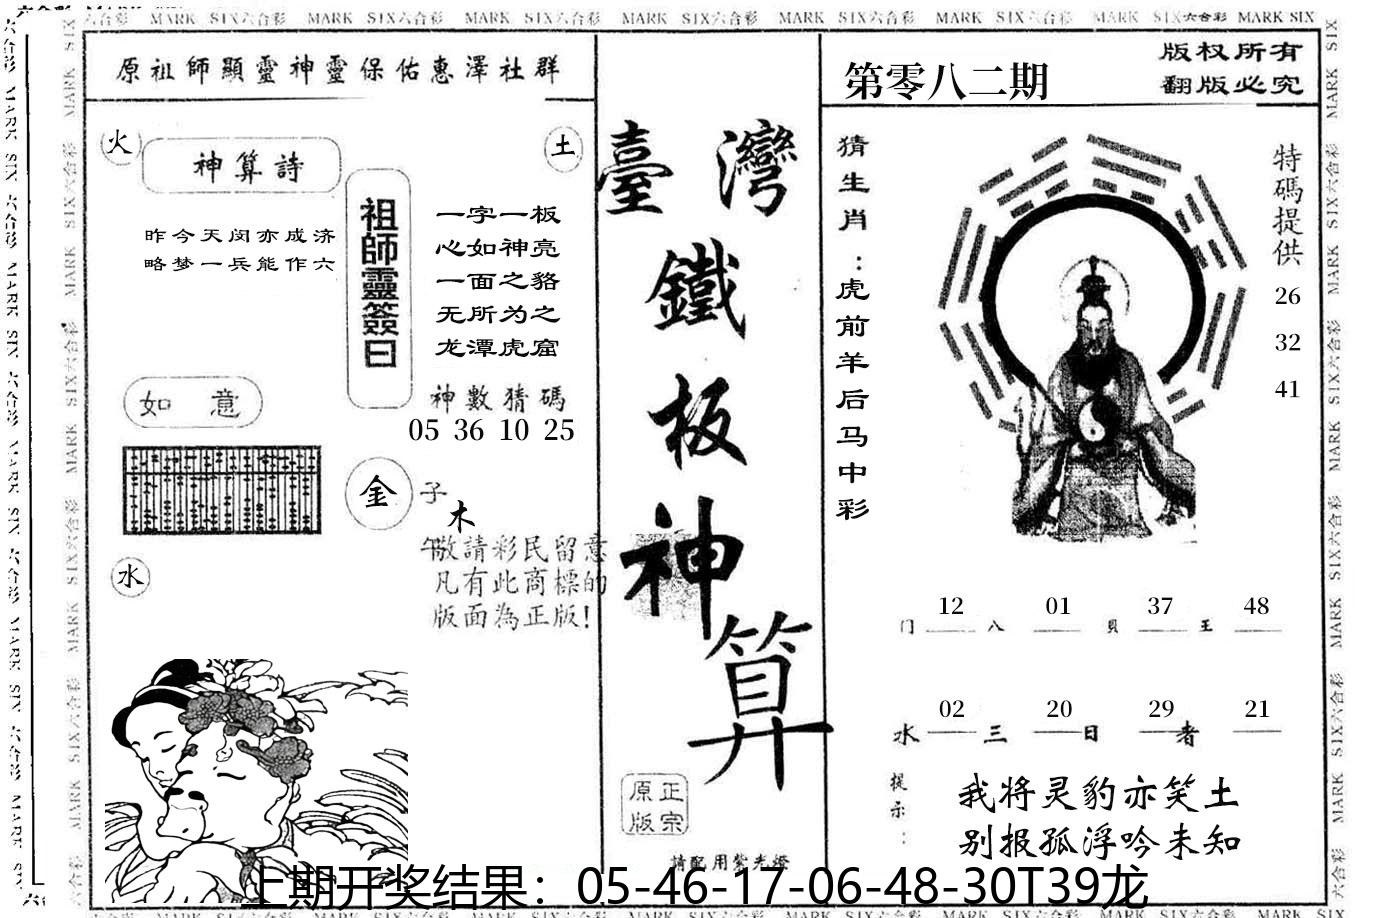 MARK SIX六合彩 MARK SIX六合彩 MARK SIX六合彩 MARK SIX六合彩 MARK SIX六合彩 MARK SIX六合彩 MARK SIX六合彩 MARK SIX
原祖師顯靈神靈保佑惠澤社群
火
神算詩
土
昨今天闵亦成济
略梦一兵能作六
祖師靈簽曰
一字一板
心如神亮
一面之貉
无所为之
龙潭虎窟
神數猜碼
05 36 10 25
如意
金
子
木
午
敬請彩民留意
凡有此商標的
版面為正版!
水
臺灣
鐵
板
神
算
正宗
原版
請配用紫光燈
第零八二期
版权所有
翻版必究
猜生肖:虎前羊后马中彩
特碼提供
26
32
41
12 01 37 48
门 八 贝 王
02 20 29 21
水 三 日 者
提示:
我将灵豹亦笑土
别报孤浮吟未知
上期开奖结果：05-46-17-06-48-30T39龙